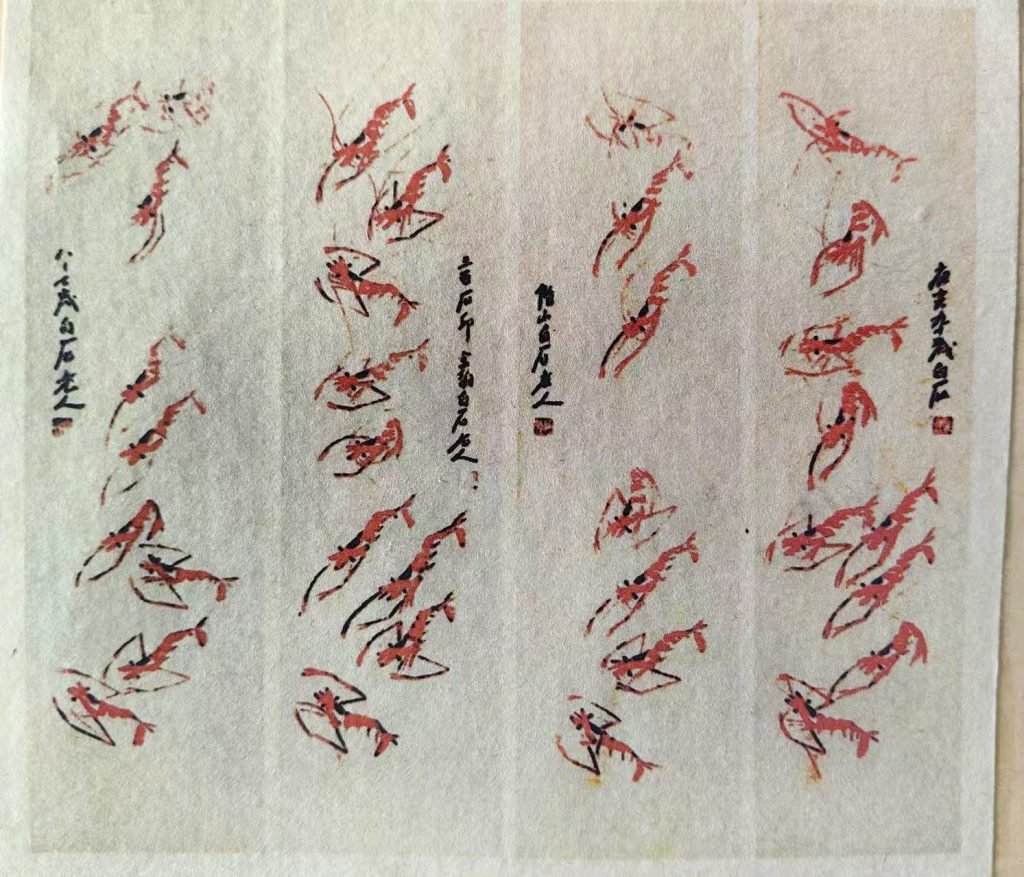 歲白石
借山白石老人
三百石印富翁白石老人
八十七歲白石老人